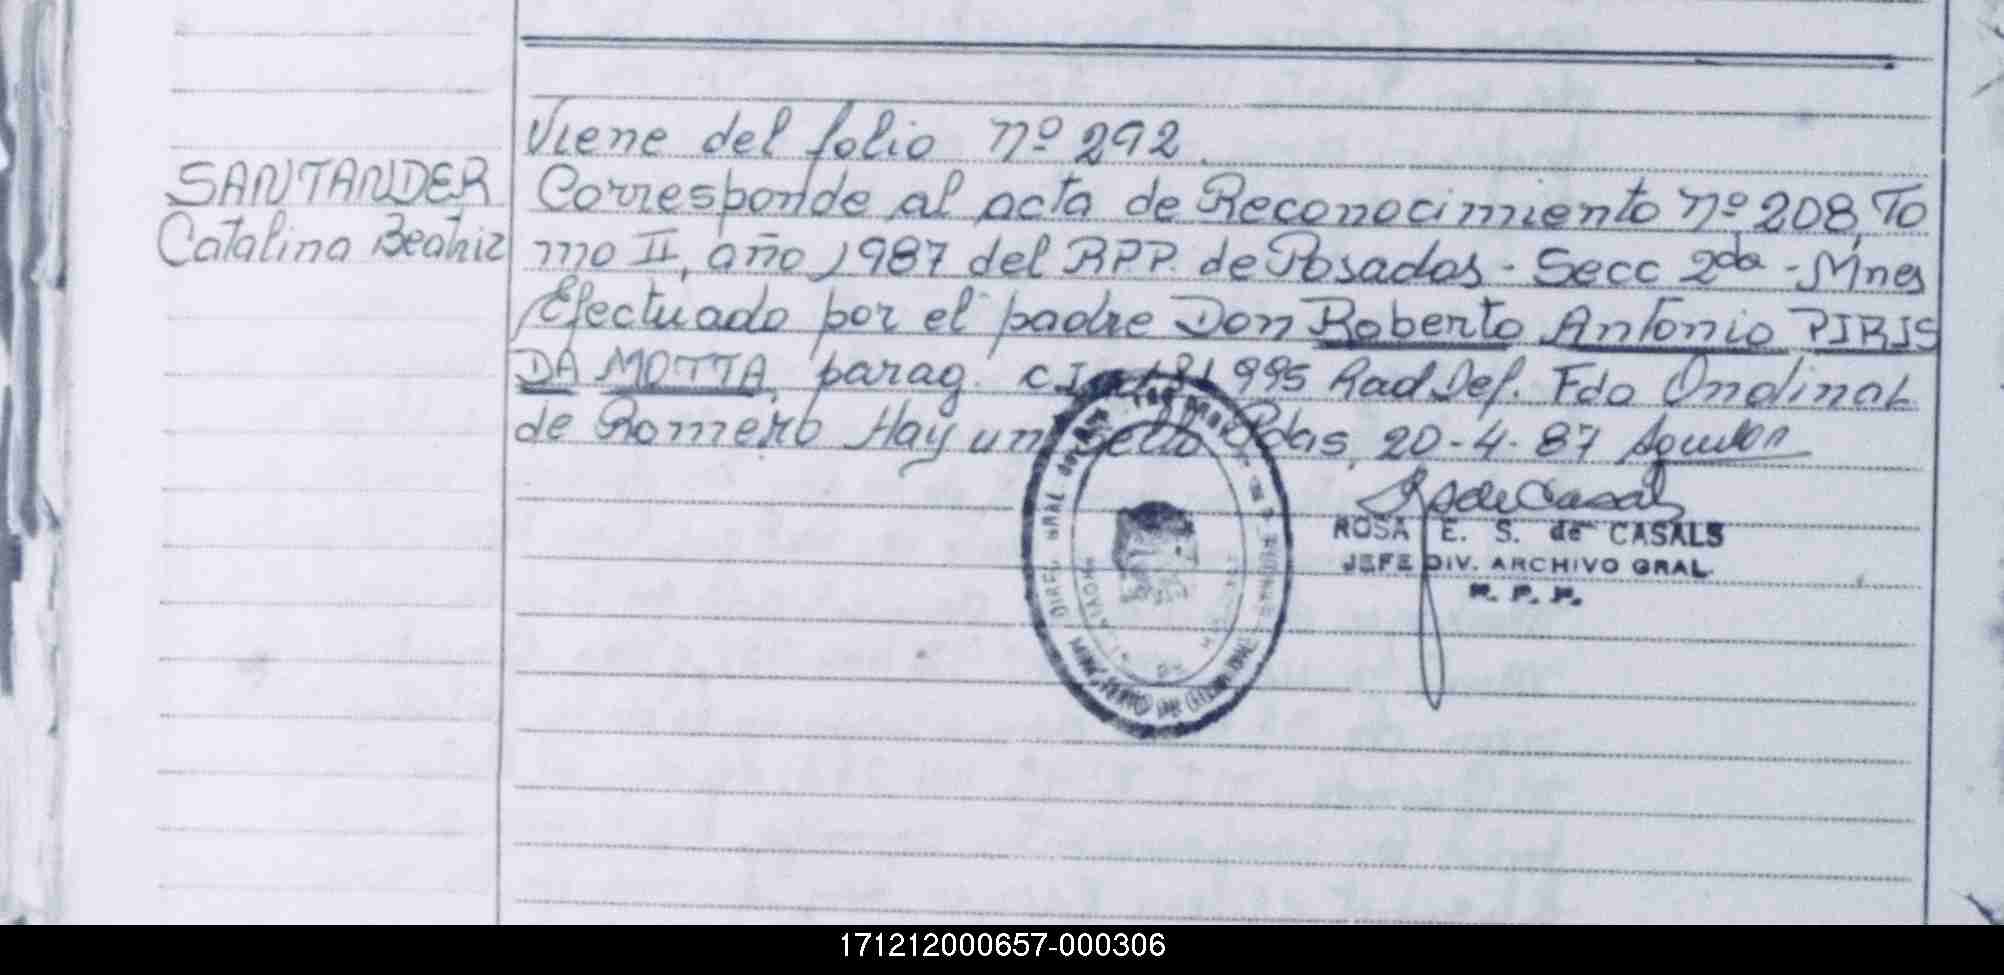 Viene del folio nº 292.
SANTANDER
Catalina Beatriz
Corresponde al acta de Reconocimiento nº 208, To
mo II, año 1987 del RPP. de Posadas - Secc 2da - Mnes
Efectuado por el padre Don Roberto Antonio PIRIS
DA MOTTA, parag. CI 995 Rad Def. Fdo Ondina L
de Romero Hay un sello Pdas, 20-4-87
ROSA E. S. de CASALS
JEFE DIV. ARCHIVO GRAL.
R. P. P.
171212000657-000306